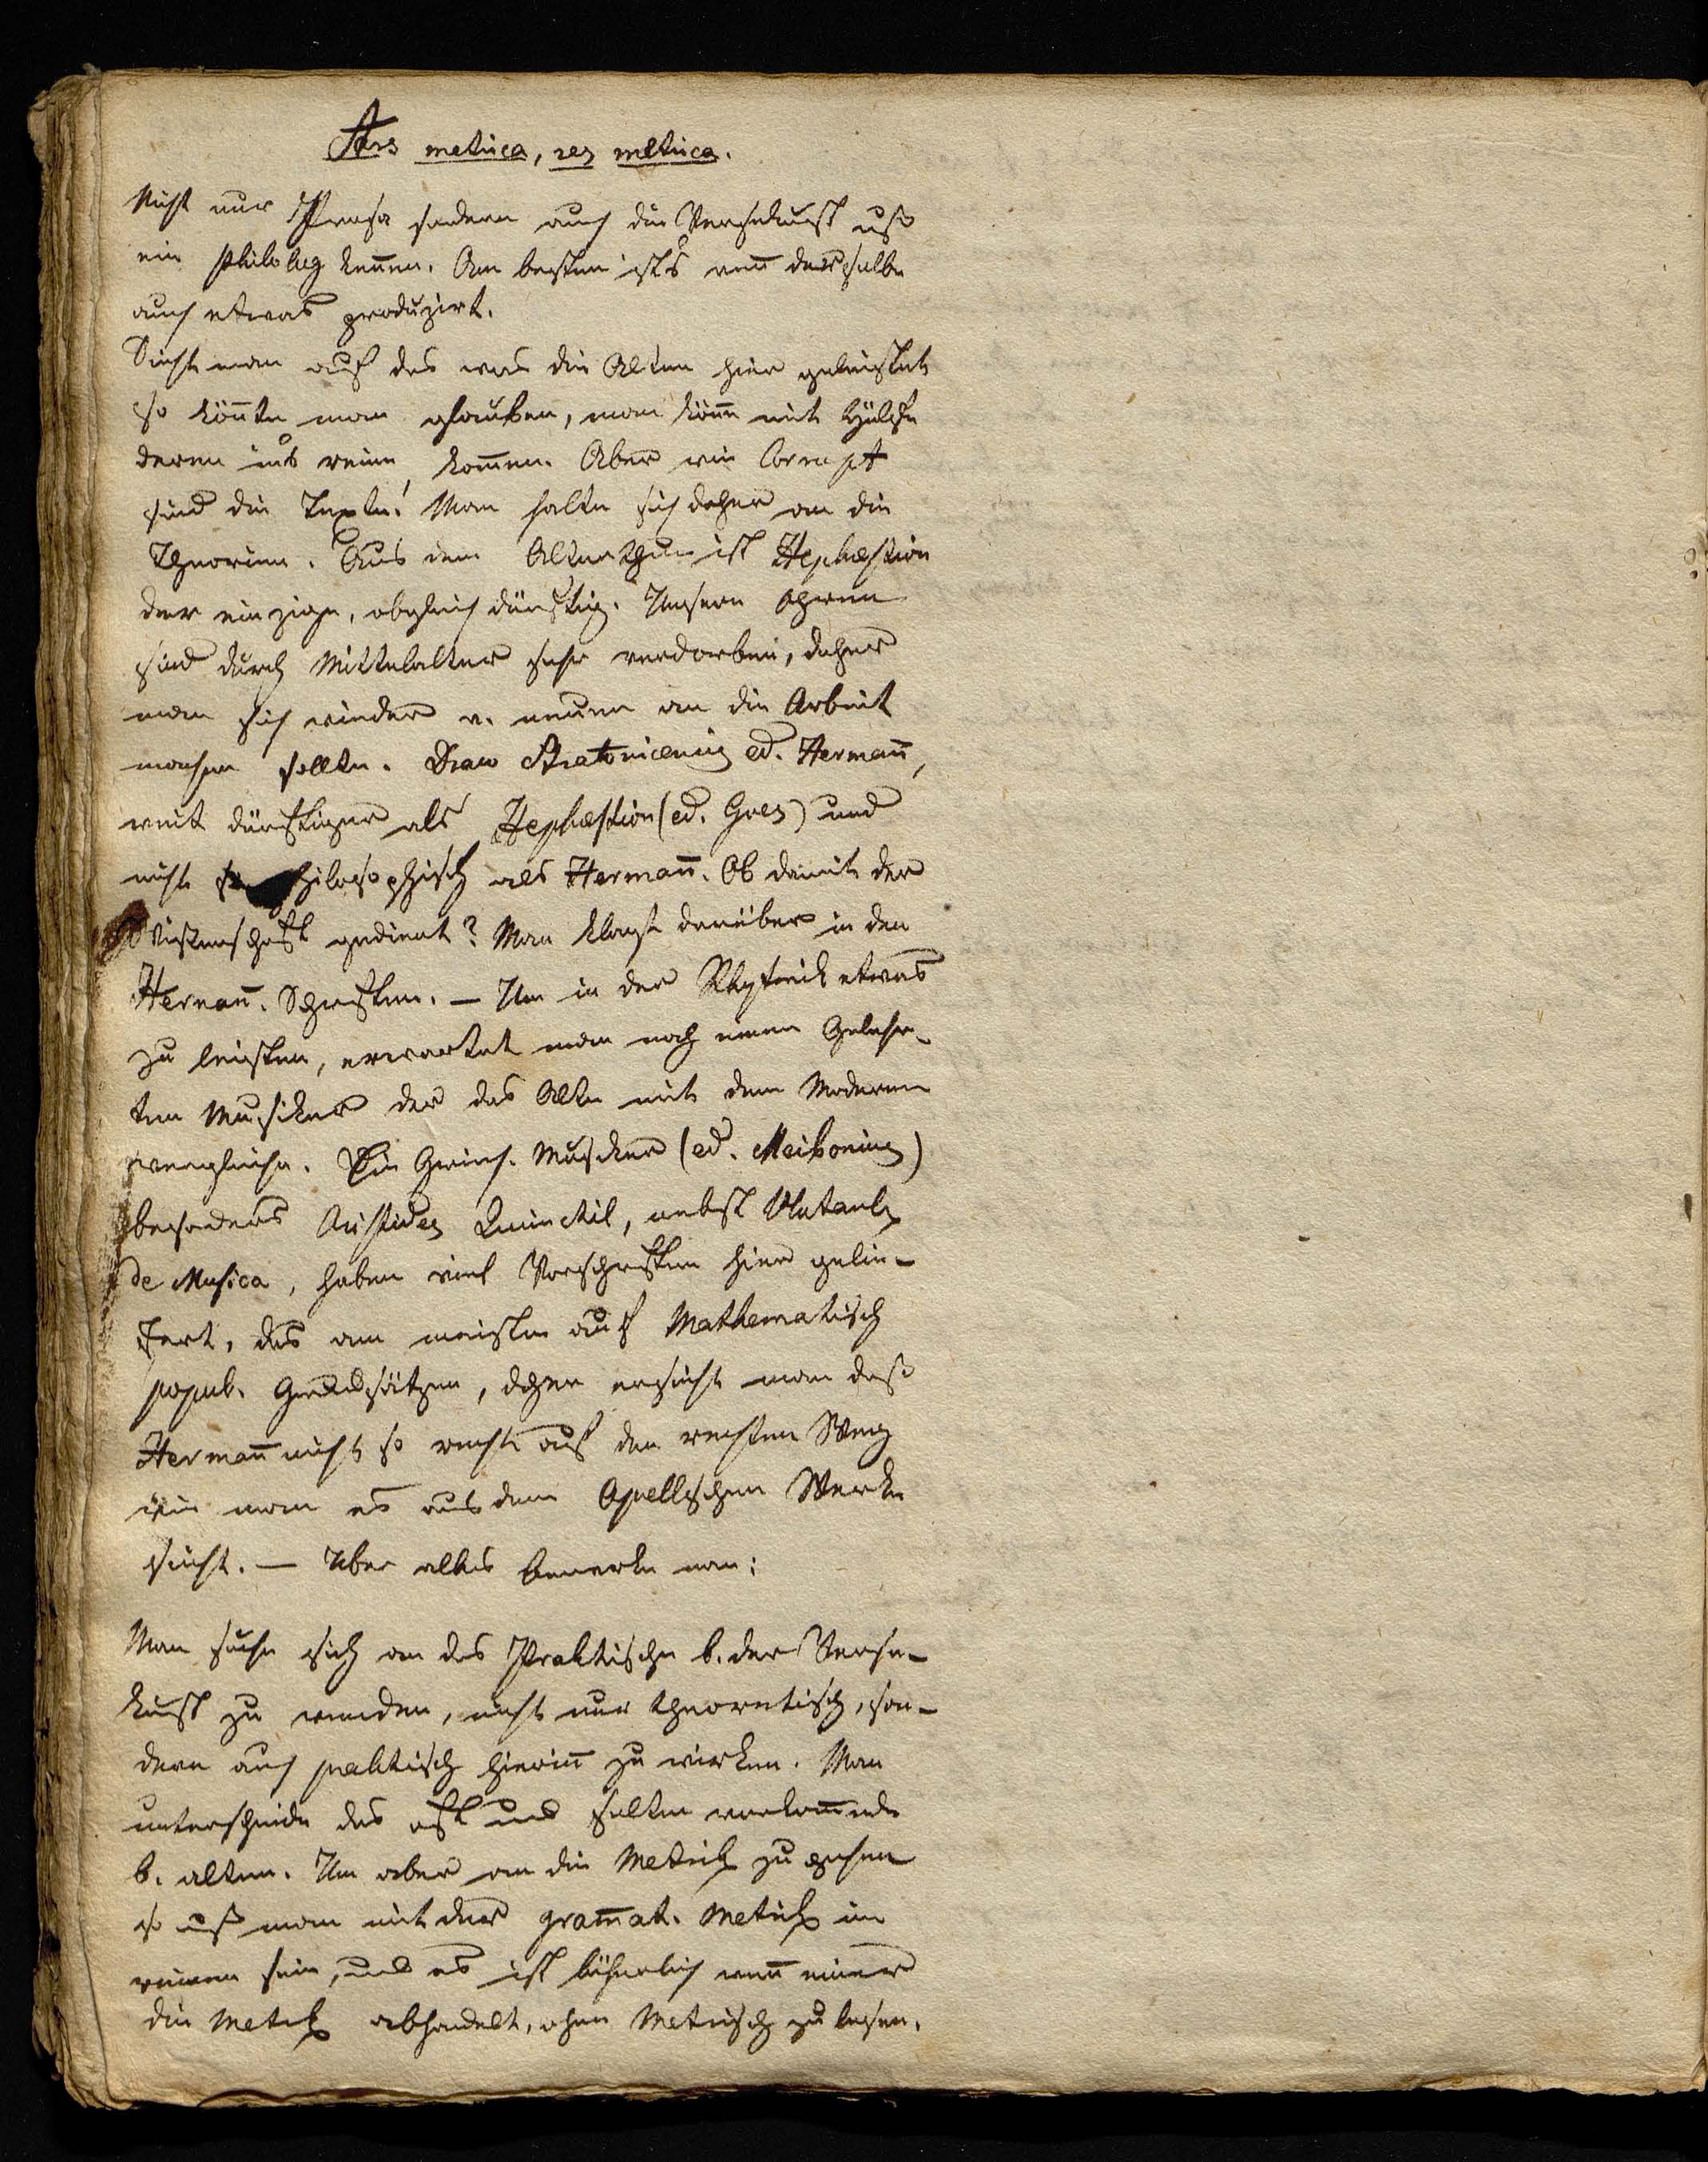 Ars metrica, res metrica.
Nicht nur Prosa sondern auch die Versekunst muß
ein Philolog kennen. Am besten ists wenn derselbe
auch etwas produzirt.
Sieht man auf das was die Alten hier geleistet
so könnte man glauben, man könne mit Hülfe
deren ins reine kommen. Aber wie Corrupt
sind die Texte! Man halte sich daher an die
Theorien. Aus dem Alterthum ist Hephæstion
der einzige, obgleich dürftig. Unsere Ohren
sind durch Mittelalter sehr verdorben, daher
man sich wieder v. neuen an die Arbeit
machen sollte. Draco Stratonicensis ed. Hermann,
weit dürftiger als Hephæstion (ed. Gres) und
nicht so philosophisch als Hermann. Ob damit der
Wissenschaft gedient? Man klagt darüber in den
Hermann. Schriften. — Um in der Rhytmik etwas
zu leisten, erwartet man noch einen Gelehr-
ten Musiker der das Alte mit dem Modernen
vergleiche. Die Griech. Musiker (ed. Meibomius)
besonders Aristides Quinctil, nebst Plutarch
de Musica, haben viel Vorschriften hier gelie-
fert, das am meisten auf Mathematisch
popul. Grundsätzen, daher ersieht man daß
Hermann nicht so recht auf den rechten Weg
wie man es aus dem Apellschen Werke
sieht. — Über alles bemerke man:
Man suche sich an das Praktische b. der Verse-
kunst zu wenden, nicht nur theoretisch, son-
dern auch praktisch hierinn zu wirken. Man
unterscheide das oft und selten vorkommende
b. alten. Um aber an die Metrik zu gehen
so muß man mit der grammat. Metrik im
reinen sein, und es ist lächerlich wenn einer
die Metrik abhandelt, ohne Metrisch zu lesen.